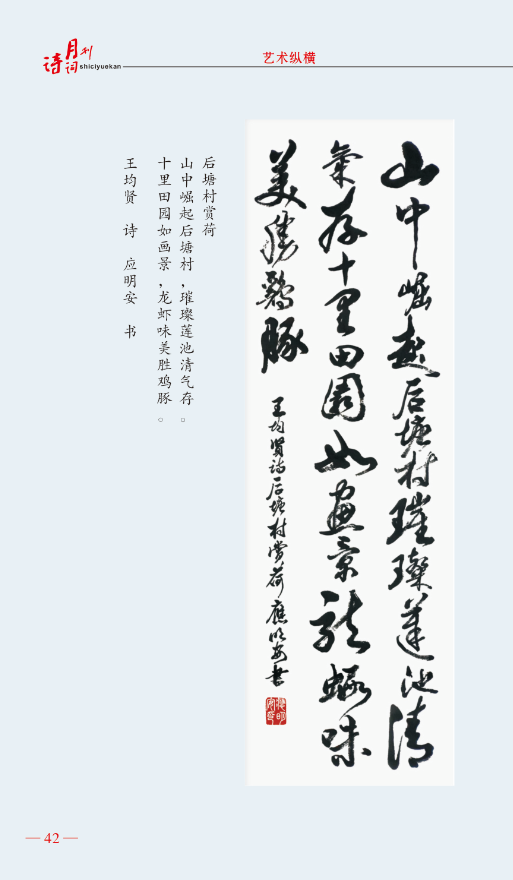 诗词月刊
shiciyuekan
艺术纵横
山中崛起后塘村璀璨莲池清
氣存十里田園如画景龙虾味
美胜鷄豚
王均贤诗后塘村赏荷應明安书
后塘村赏荷
山中崛起后塘村，璀璨莲池清气存。
十里田园如画景，龙虾味美胜鸡豚。
王均贤 诗 应明安 书
— 42 —